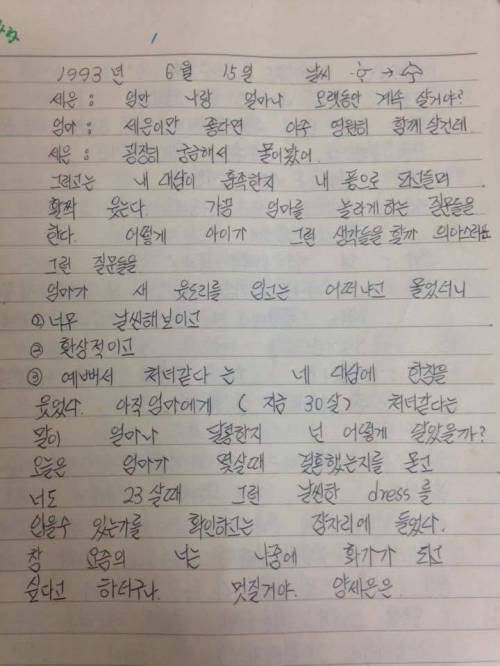 1993년 6월 15일 날씨 → 
세은 : 엄만 나랑 얼마나 오랫동안 계속 살거야?
엄마 : 세은이만 좋다면 아주 영원히 함께 살건데.
세은 : 굉장히 궁금해서 물어봤어.
그리고는 내 대답이 흡족한지 내 품으로 파고들며
활짝 웃는다. 가끔 엄마를 놀라게 하는 질문들을
한다. 어떻게 아이가 그런 생각들을 할까 의아스러운
그런 질문들을
엄마가 새 웃도리를 입고는 어떠냐고 물었더니
① 너무 날씬해보이고
② 환상적이고
③ 예뻐서 처녀같다 는 네 대답에 한참을
웃었다. 아직 엄마에게 ( 지금 30살) 처녀같다는
말이 얼마나 달콤한지 넌 어떻게 알았을까?
오늘은 엄마가 몇살때 결혼했는지를 묻고
너도 23살때 그런 날씬한 dress를
입을수 있는가를 확인하고는 잠자리에 들었다.
참 요즘의 너는 나중에 화가가 되고
싶다고 하더구나. 멋질거야. 양세은은